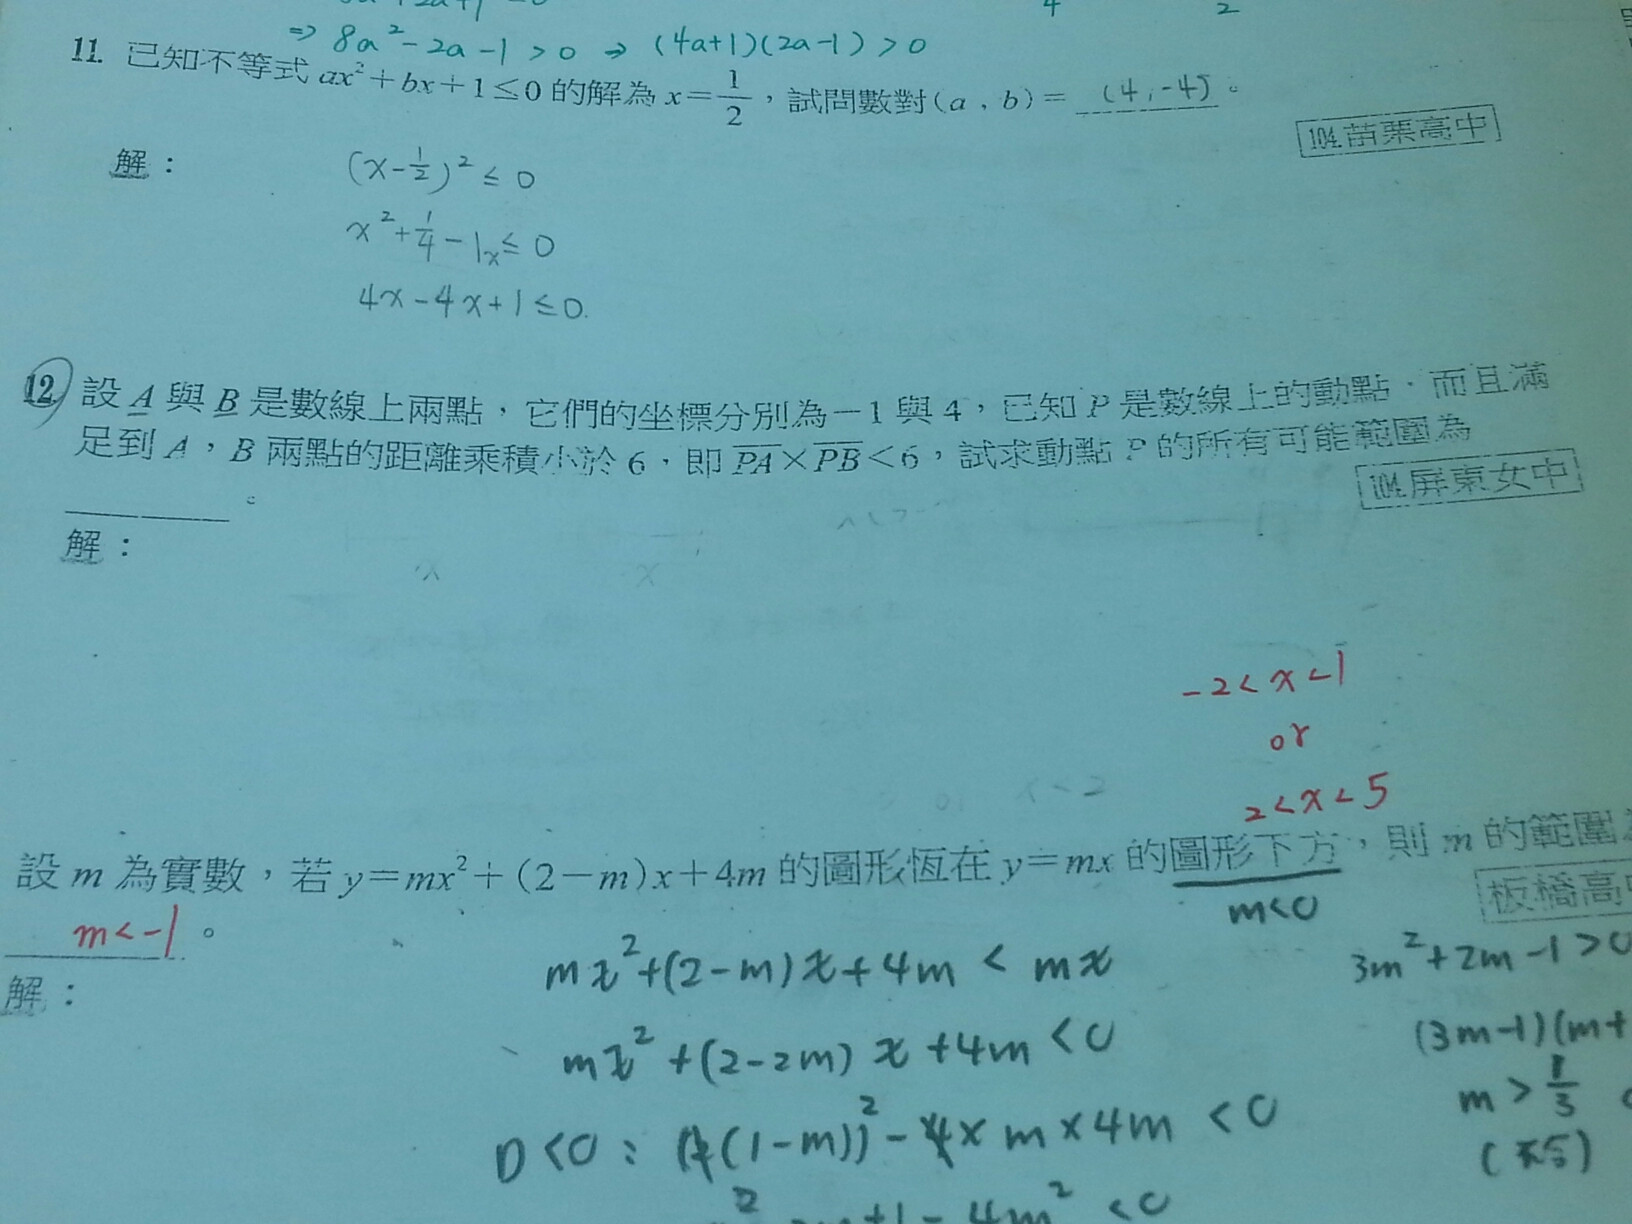 ⇒ 8a²-2a-1>0 ⇒ (4a+1)(2a-1)>0
11. 已知不等式 ax²+bx+1≤0 的解為 x=1/2，試問數對(a，b)= (4,-4) 。
104.苗栗高中
解：
(x-1/2)² ≤ 0
x²+1/4-1x≤0
4x-4x+1≤0.
12. 設 A 與 B 是數線上兩點，它們的坐標分別為－1 與 4，已知 P 是數線上的動點，而且滿
足到 A，B 兩點的距離乘積小於 6，即 PA×PB<6，試求動點 P 的所有可能範圍為
。
104.屏東女中
解：
-2<x<1
or
2<x<5
設 m 為實數，若 y=mx²+(2－m)x+4m 的圖形恆在 y=mx 的圖形下方，則 m 的範圍
m<0
板橋高
m<-1 。
解：
mx²+(2-m)x+4m < mx
mx²+(2-2m)x+4m<0
D<0：(2(1-m))²-4×m×4m<0
3m²+2m-1>0
(3m-1)(m+
m>1/3
(不合)